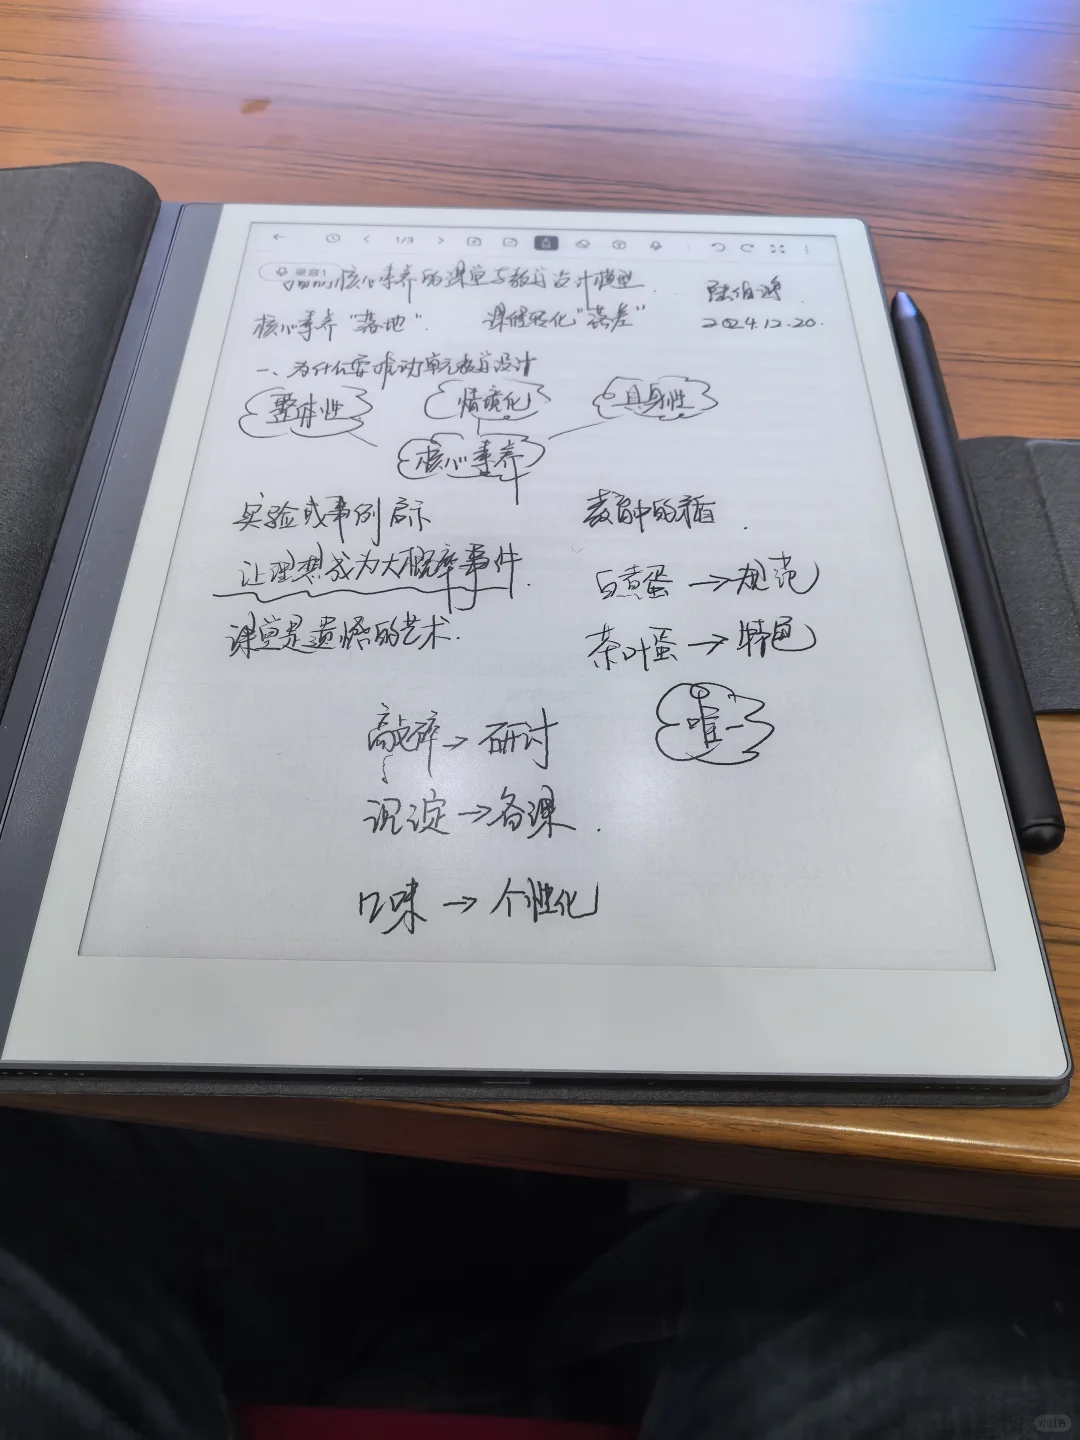 1/3
录音1
核心素养的课堂与教学设计模型
陆伯鸿
核心素养"落地". 课程转化"落差"
2024.12.20.
一、为什么要求动单元教学设计
整体性 情境化 具身性
核心素养
实验或事例启示
让理想成为大概率事件.
课堂是遗憾的艺术.
教育中的矛盾.
白煮蛋→规范
茶叶蛋→特色
唯一
敲碎→研讨
沉淀→备课.
口味→个性化